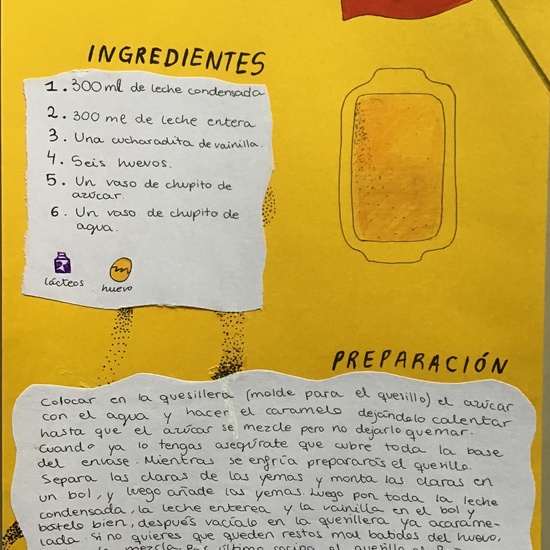 INGREDIENTES
1. 300ml de leche condensada
2. 300 ml de leche entera
3. Una cucharadita de vainilla.
4. Seis huevos.
5. Un vaso de chupito de
azúcar.
6. Un vaso de chupito de
agua.
lácteos
huevo
PREPARACIÓN
Colocar en la quesillera (molde para el quesillo) el azúcar
con el agua y hacer el caramelo dejándolo calentar
hasta que el azúcar se mezcle pero no dejarlo quemar.
Cuando ya lo tengas asegúrate que cubre toda la base
del envase. Mientras se enfría prepararás el quesillo.
Separa las claras de las yemas y monta las claras en
un bol, y luego añade las yemas. Luego pon toda la leche
condensada, la leche enterea y la vainilla en el bol y
bátelo bien, después vacíalo en la quesillera ya acarame-
lada. Si no quieres que queden restos mal batidos del huevo,
la mezcla. Por último cocina el quesillo al